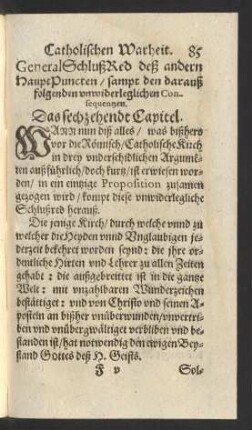 Catholischen Warheit. 85
General SchlußRed deß andern
Haupt Puncten / sampt den darauß
folgenden vnwiderleglichen Con-
sequentzen.
Das sechzehendt Capitel.
WAnn nun diß alles / was bißhero
vor die Römisch / Catholische Kirch
in drey vnderschidlichen Argumē-
ten außführlich / doch kurtz / ist erwiesen wor-
den / in ein eintzige Proposition zusamen
gezogen wird / kompt diese vnwidlegliche
Schlußred herauß.
Die jenige Kirch / durch welche vnnd zu
welcher die Heyden vnnd Vnglaubigen je-
derzeit bekehret worden seynd: die jhre or-
dentliche Hirten vnd Lehrer zu allen Zeiten
gehabt: die außgebreittet ist in die gantze
Welt: mit vnzahlbaren Wunderzeichen
bestättiget: vnd von Christo vnd seinen A-
posteln an bißher vnüberwunden / vnvertri-
ben vnd vnübergwältiget verbliben vnd be-
standen ist / hat notwendig den ewigen Bey-
stand Gottes deß H. Geists.
F v Sol-